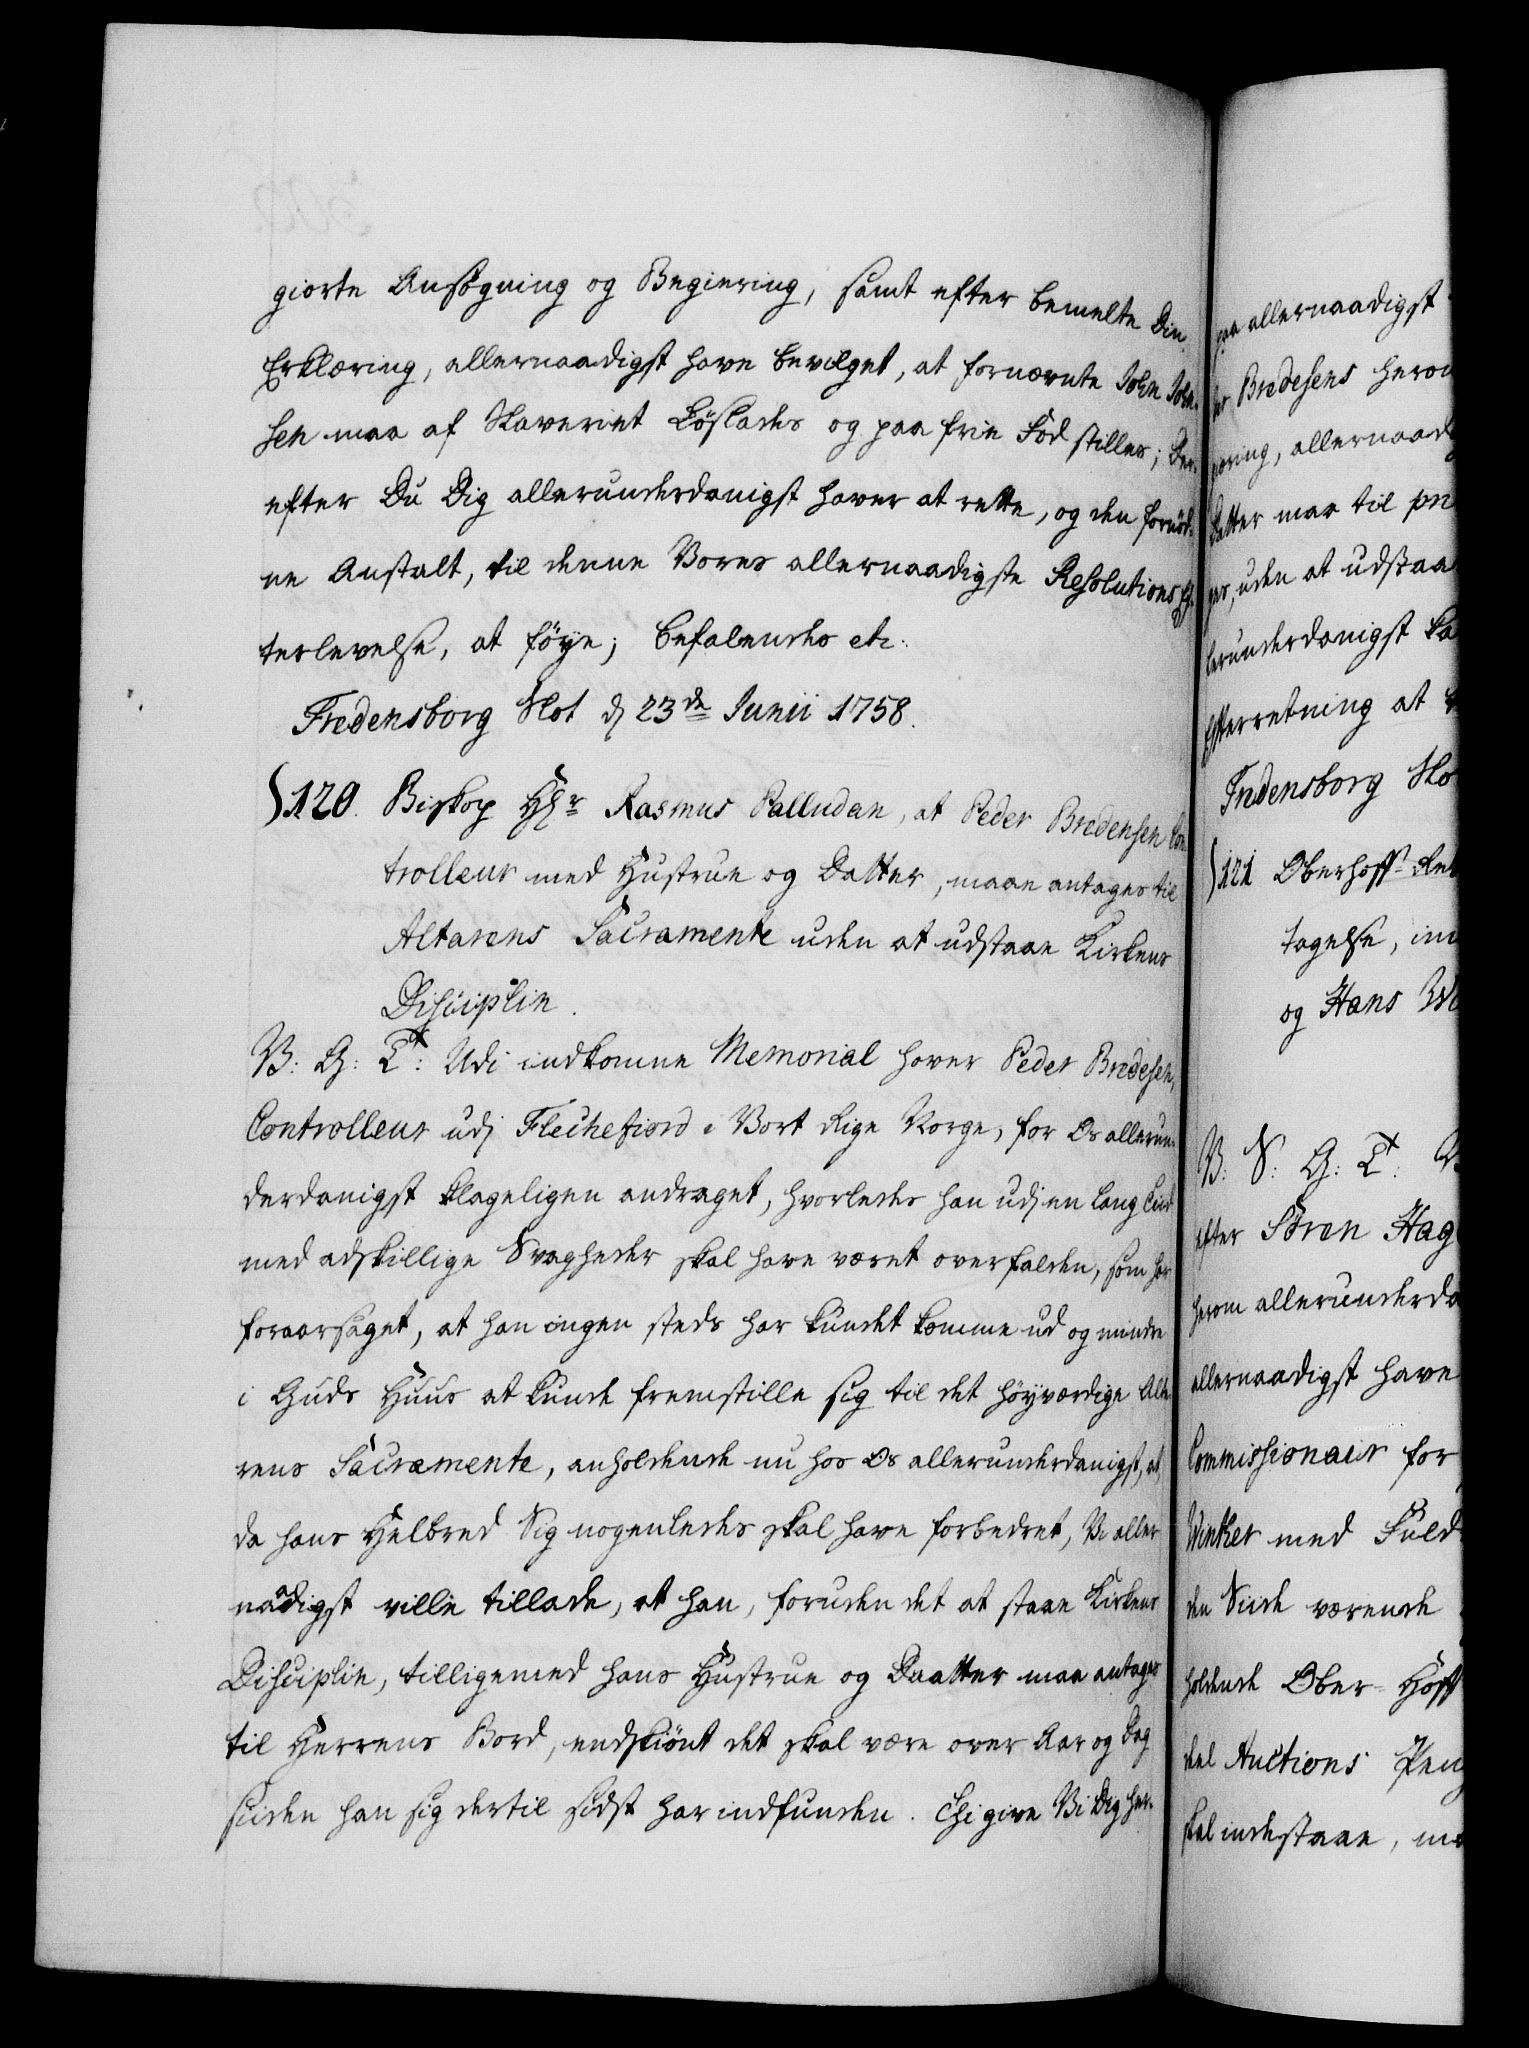 giorte Ansøgning og Begiering, samt efter bemelte Din
Erklæring, allernaadigst have bevilget, at fornævnte John John-
sen maa af Slaveriet Løslades og paa frie Fod stilles; Der-
efter Du Dig allerunderdanigst haver at rette, og den fornød-
ne Anstalt, til denne Vores allernaadigste Resolutions Ef-
terlevelse, at føye; Befalendes etc:
Fredensborg Slot d 23de Junii 1758.
120. Biskop Hr Rasmus Palludan, at Peder Bredensen Con-
trolleur med Hustrue og Datter, maae antages til
Altarens Sacramente uden at udstaae Kirkens
Disciplin.
V: G: T: Udi indkomne Memorial haver Peder Bredesen,
Controlleur udj Flechefiord i Vort Rige Norge, for Os allerun-
derdanigst klageligen andraget, hvorledes han udj en lang Tiid
med adskillige Svagheder skal have været overfalden, som har
foraarsaget, at han ingen steds har kundet komme ud og mindre
i Guds Huus at kunde fremstille sig til det høyværdige Alte
rens Sacramente, anholdende nu hos Os allerunderdanigst, at,
da hans Helbred Sig nogenledes skal have forbedret, Vi aller
naadigst ville tillade, at han, foruden det at staae Kirkens
Disciplin, tilligemed hans Hustrue og Daatter maa antages
til Herrens Bord, endskiønt det skal være over Aar og Dag
siden han sig dertil sidst har indfunden. Thi give Vi Dig her-
paa allernaadigst
Bredesens herom
æring, allernaad
Datter maa til
ges, uden at udstaae
lerunderdanigst
Efterretning at
Fredensborg Slo
121 Oberhoff-
tagelse,
og Hans
V: S: G: T:
efter Søren Hag
herom allerunderda
allernaadigst have
Commissionair for
Winther med Fuld
den Stude værende
holdende Ober-Hoff
del Auctions Peng
skal indestaae,